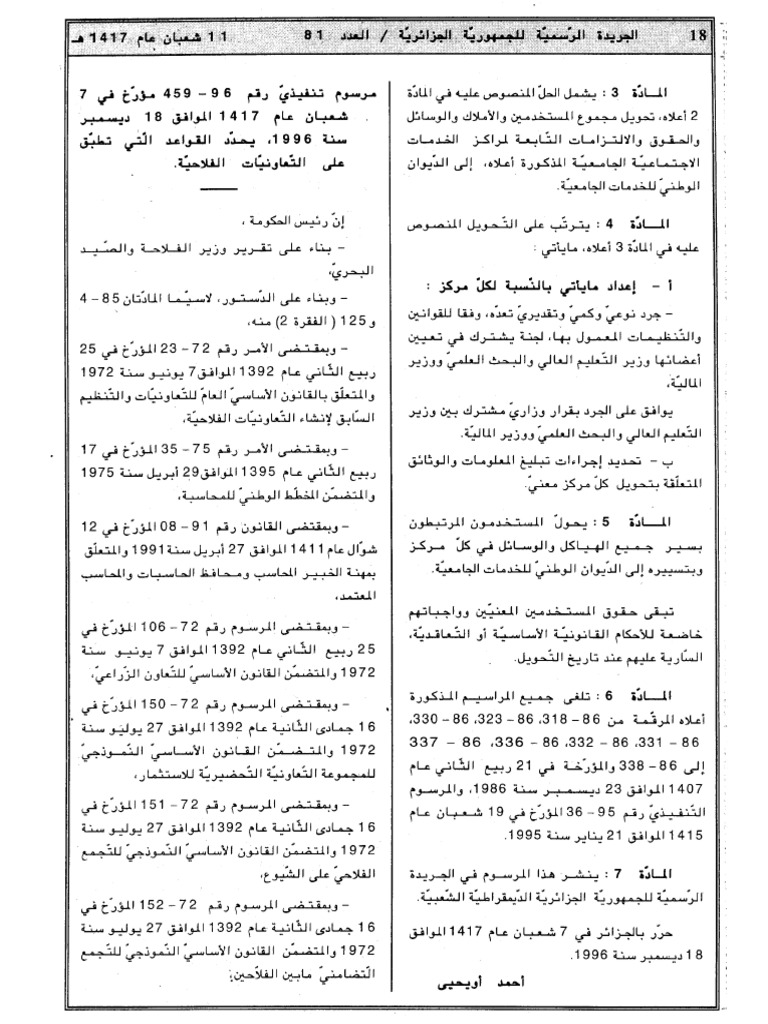 18 الجريدة الرّسميّة للجمهوريّة الجزائريّة / العدد 81 11 شعبان عام 1417 هـ
المـادّة 3 : يشمل الحلّ المنصوص عليه في المادّة
2 أعلاه، تحويل مجموع المستخدمين والأملاك والوسائل
والحقوق والالتزامات التّابعة لمراكز الخدمات
الاجتماعيّة الجامعيّة المذكورة أعلاه، إلى الدّيوان
الوطنيّ للخدمات الجامعيّة.
المـادّة 4 : يترتّب على التّحويل المنصوص
عليه في المادّة 3 أعلاه، مايأتي :
أ – إعداد مايأتي بالنّسبة لكلّ مركز :
– جرد نوعيّ وكميّ وتقديريّ تعدّه، وفقا للقوانين
والتّنظيمات المعمول بها، لجنة يشترك في تعيين
أعضائها وزير التّعليم العالي والبحث العلميّ ووزير
الماليّة،
يوافق على الجرد بقرار وزاريّ مشترك بين وزير
التّعليم العالي والبحث العلميّ ووزير الماليّة.
ب – تحديد إجراءات تبليغ المعلومات والوثائق
المتعلّقة بتحويل كلّ مركز معنيّ.
المـادّة 5 : يحولّ المستخدمون المرتبطون
بسير جميع الهياكل والوسائل في كلّ مركز
وبتسييره إلى الدّيوان الوطنيّ للخدمات الجامعيّة.
تبقى حقوق المستخدمين المعنيّين وواجباتهم
خاضعة للأحكام القانونيّة الأساسيّة أو التّعاقديّة،
السّارية عليهم عند تاريخ التّحويل.
المـادّة 6 : تلغى جميع المراسيم المذكورة
أعلاه المرقّمة من 86 – 318، 86 – 323، 86 – 330،
86 – 331، 86 – 332، 86 – 336، 86 – 337
إلى 86 – 338 والمؤرّخة في 21 ربيع الثّاني عام
1407 الموافق 23 ديسمبر سنة 1986، والمرسوم
التّنفيذيّ رقم 95 – 36 المؤرّخ في 19 شعبان عام
1415 الموافق 21 يناير سنة 1995.
المـادّة 7 : ينشر هذا المرسوم في الجريدة
الرّسميّة للجمهوريّة الجزائريّة الدّيمقراطيّة الشّعبيّة.
حرّر بالجزائر في 7 شعبان عام 1417 الموافق
18 ديسمبر سنة 1996.
أحمد أويحيى
مرسوم تنفيذيّ رقم 96 – 459 مؤرّخ في 7
شعبان عام 1417 الموافق 18 ديسمبر
سنة 1996، يحدّد القواعد الّتي تطبّق
على التّعاونيّات الفلاحيّة.
إنّ رئيس الحكومة ،
– بناء على تقرير وزير الفلاحة والصّيد
البحريّ،
– وبناء على الدّستور، لاسيّما المادّتان 85 – 4
و 125 ( الفقرة 2) منه،
– وبمقتضى الأمر رقم 72 – 23 المؤرّخ في 25
ربيع الثّاني عام 1392 الموافق 7 يونيو سنة 1972
والمتعلّق بالقانون الأساسيّ العامّ للتّعاونيّات والتّنظيم
السّابق لإنشاء التّعاونيّات الفلاحيّة،
– وبمقتضى الأمر رقم 75 – 35 المؤرّخ في 17
ربيع الثّاني عام 1395 الموافق 29 أبريل سنة 1975
والمتضمّن المخطّط الوطنيّ للمحاسبة،
– وبمقتضى القانون رقم 91 – 08 المؤرّخ في 12
شوّال عام 1411 الموافق 27 أبريل سنة 1991 والمتعلّق
بمهنة الخبير المحاسب ومحافظ الحاسبات والمحاسب
المعتمد،
– وبمقتضى المرسوم رقم 72 – 106 المؤرّخ في
25 ربيع الثّاني عام 1392 الموافق 7 يونيو سنة
1972 والمتضمّن القانون الأساسيّ للتّعاون الزّراعيّ،
– وبمقتضى المرسوم رقم 72 – 150 المؤرّخ في
16 جمادى الثّانية عام 1392 الموافق 27 يوليو سنة
1972 والمتضمّن القانون الأساسيّ النّموذجيّ
للمجموعة التّعاونيّة التّحضيريّة للاستثمار،
– وبمقتضى المرسوم رقم 72 – 151 المؤرّخ في
16 جمادى الثّانية عام 1392 الموافق 27 يوليو سنة
1972 والمتضمّن القانون الأساسيّ النّموذجيّ للتّجمع
الفلاحيّ على الشّيوع،
– وبمقتضى المرسوم رقم 72 – 152 المؤرّخ في
16 جمادى الثّانية عام 1392 الموافق 27 يوليو سنة
1972 والمتضمّن القانون الأساسيّ النّموذجيّ للتّجمع
التّضامنيّ مابين الفلاحين،